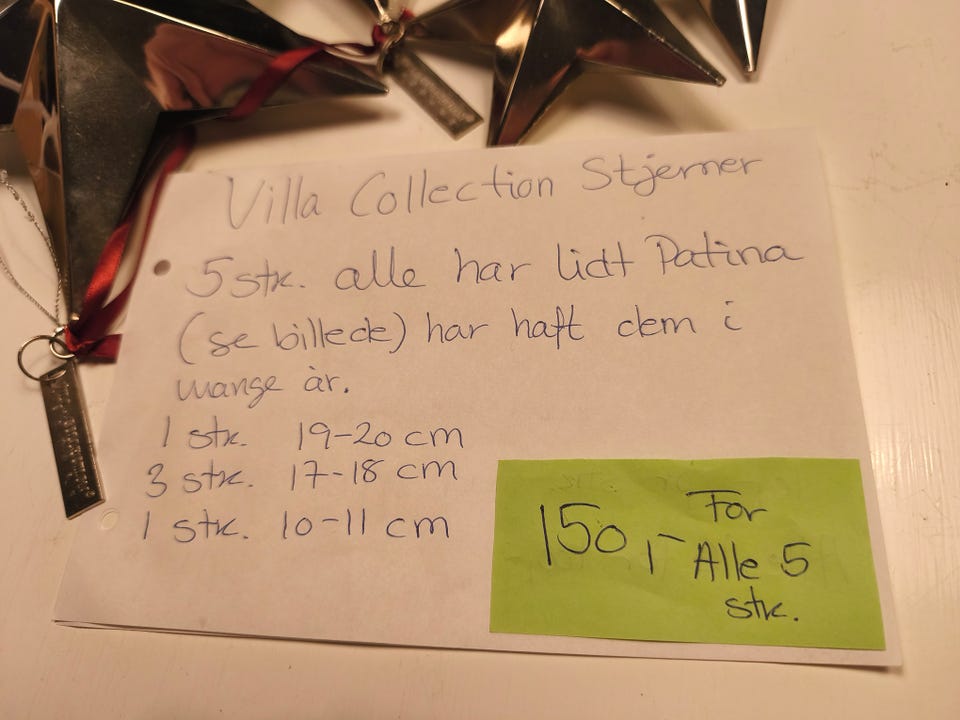 Villa Collection Stjerner
5 stk. alle har lidt Patina
(se billede) har haft dem i
mange år.
1 stk. 19-20 cm
3 stk. 17-18 cm
1 stk. 10-11 cm
150,- For
Alle 5
stk.